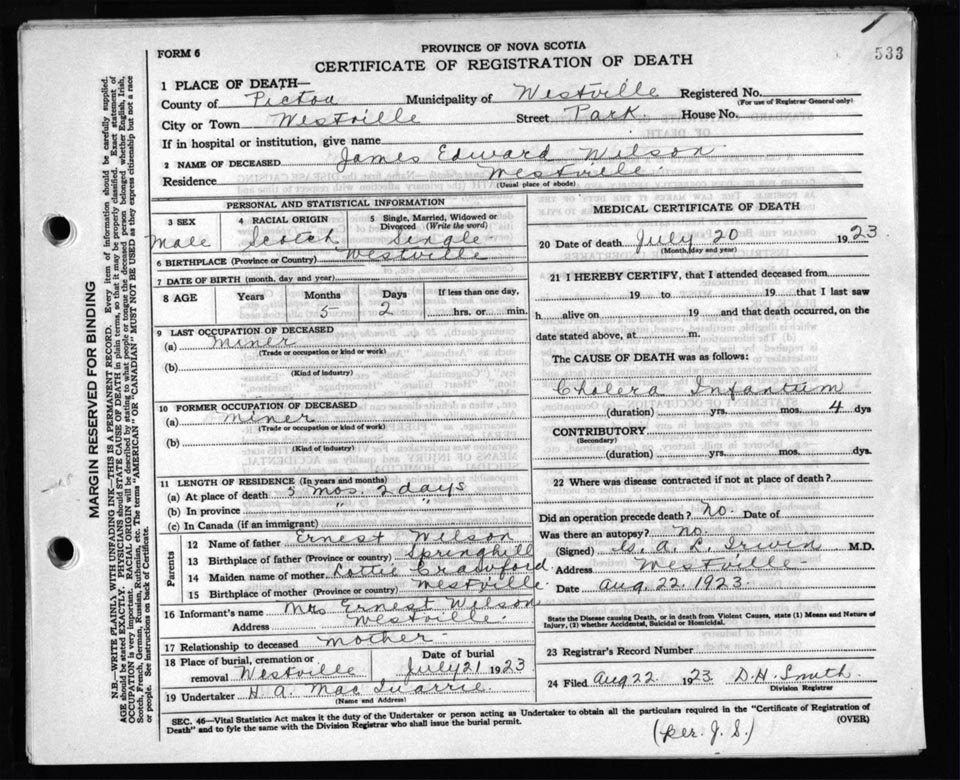 533
FORM 6
PROVINCE OF NOVA SCOTIA
CERTIFICATE OF REGISTRATION OF DEATH
1 PLACE OF DEATH—
County of Pictou Municipality of Westville Registered No.
(For use of Registrar General only)
City or Town Westville Street Park House No.
If in hospital or institution, give name
2 NAME OF DECEASED James Edward Wilson
Residence Westville
(Usual place of abode)
PERSONAL AND STATISTICAL INFORMATION
3 SEX Male
4 RACIAL ORIGIN Scotch
5 Single, Married, Widowed or Divorced (Write the word) Single
6 BIRTHPLACE (Province or Country) Westville
7 DATE OF BIRTH (month, day and year)
8 AGE Years Months Days If less than one day,
5 2 hrs. or min.
9 LAST OCCUPATION OF DECEASED
(a) Miner
(Trade or occupation or kind or work)
(b)
(Kind of industry)
10 FORMER OCCUPATION OF DECEASED
(a) Miner
(Trade or occupation or kind of work)
(b)
(Kind of industry)
11 LENGTH OF RESIDENCE (In years and months)
(a) At place of death 5 mos. 2 days
(b) In province " "
(c) In Canada (if an immigrant)
Parents
12 Name of father Ernest Wilson
13 Birthplace of father (Province or country) Springhill
14 Maiden name of mother Lottie Crawford
15 Birthplace of mother (Province or country) Westville
16 Informant's name Mrs Ernest Wilson
Address Westville
17 Relationship to deceased Mother
18 Place of burial, cremation or removal Westville
Date of burial July 21 1923
19 Undertaker H. A. MacQuarrie
(Name and Address)
MEDICAL CERTIFICATE OF DEATH
20 Date of death July 20 1923
(Month, day and year)
21 I HEREBY CERTIFY, that I attended deceased from
19 to 19 that I last saw
h alive on 19 and that death occurred, on the
date stated above, at m.
The CAUSE OF DEATH was as follows:
Cholera Infantum
(duration) yrs. mos. 4 dys
CONTRIBUTORY
(Secondary)
(duration) yrs. mos. dys.
22 Where was disease contracted if not at place of death?
Did an operation precede death? No. Date of
Was there an autopsy? No.
(Signed) G. A. L. Irwin M.D.
Address Westville
Date Aug. 22. 1923.
State the Disease causing Death, or in death from Violent Causes, state (1) Means and Nature of
Injury, (2) whether Accidental, Suicidal or Homicidal.
23 Registrar's Record Number
24 Filed Aug 22 1923 D. H. Smith
Division Registrar
SEC. 46—Vital Statistics Act makes it the duty of the Undertaker or person acting as Undertaker to obtain all the particulars required in the "Certificate of Registration of
Death" and to fyle the same with the Division Registrar who shall issue the burial permit.
(OVER)
(per J. S.)
MARGIN RESERVED FOR BINDING
N.B.—WRITE PLAINLY WITH UNFADING INK—THIS IS A PERMANENT RECORD. Every item of information should be carefully supplied.
AGE should be stated EXACTLY. PHYSICIANS should STATE CAUSE OF DEATH in plain terms, so that it may be properly classified. Exact statement of
OCCUPATION is very important. RACIAL ORIGIN will be described by stating to what people or tongue the deceased person belonged whether English, Irish,
Scotch, French, German, Russian, Ruthenian, etc. The terms "AMERICAN" OR "CANADIAN" MUST NOT BE USED as they express citizenship but not a race
or people. See instructions on back of Certificate.